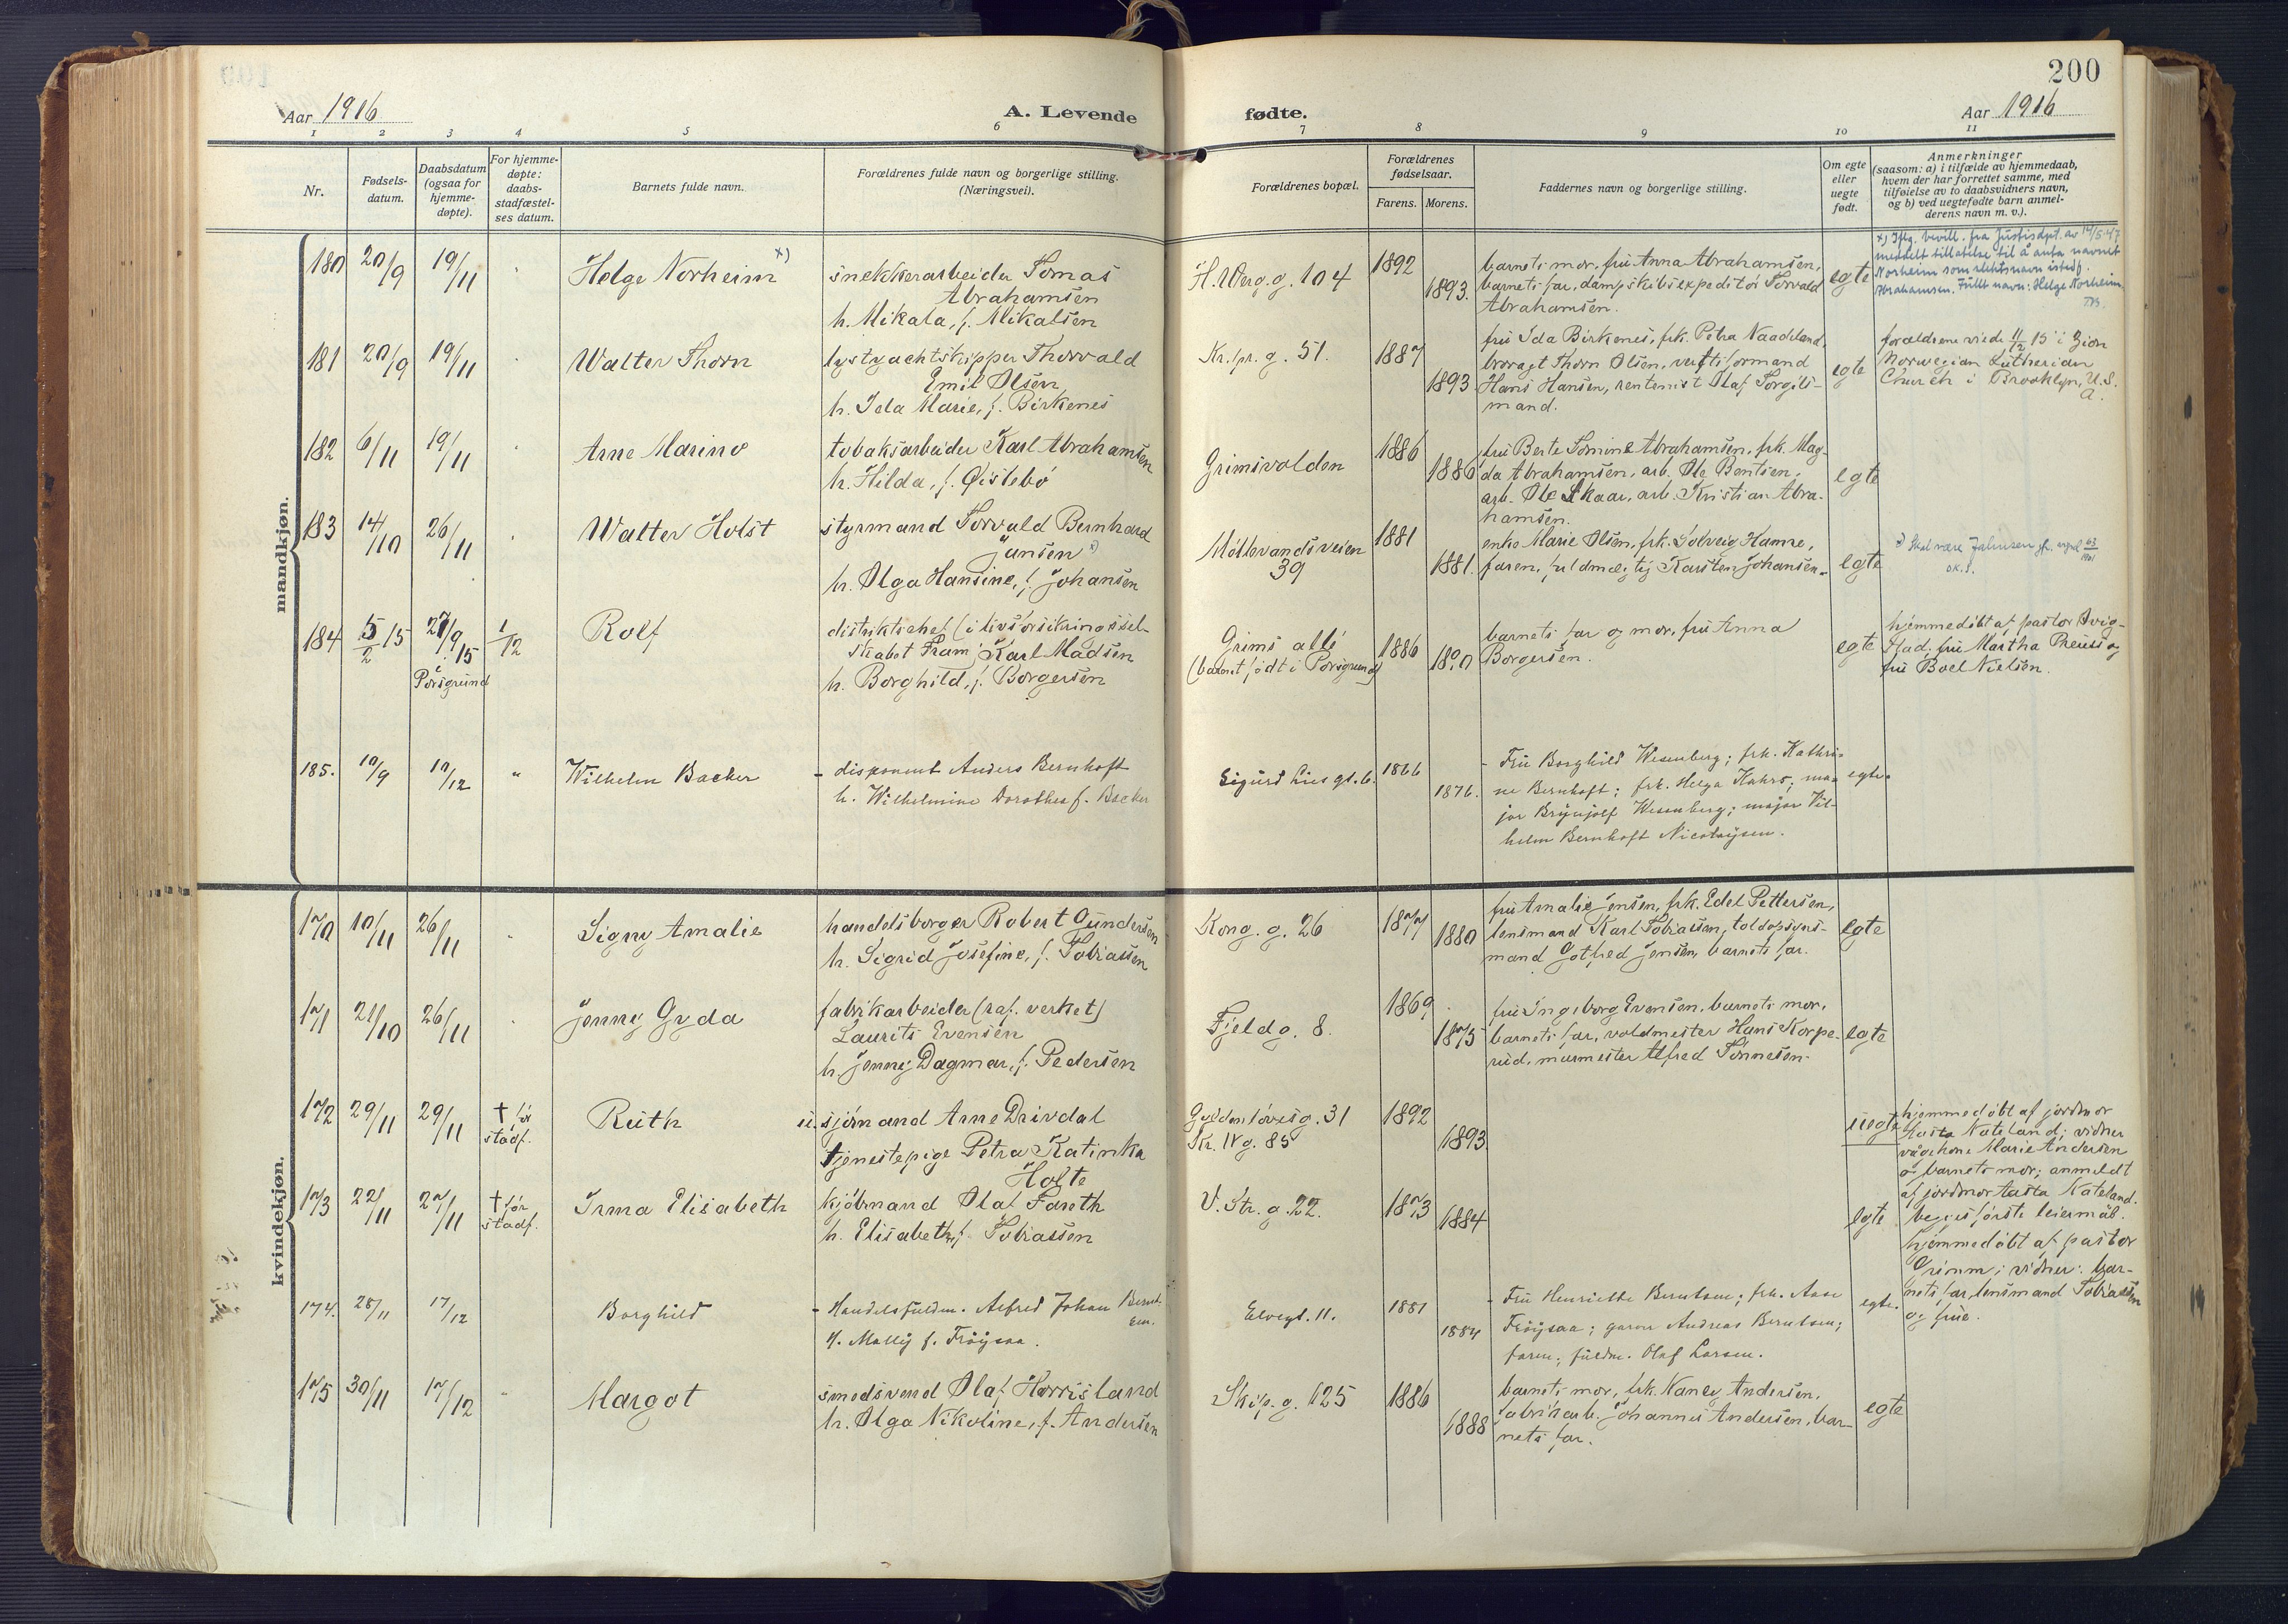 200
Aar 1916
A. Levende
fødte.
Aar 1916
1 2 3 4 5 6 7 8 9 10 11
Nr.
Fødsels-
datum.
Daabsdatum
(ogsaa for
hjemme-
døpte).
For hjemme-
døpte:
daabs-
stadfæstel-
ses datum.
Barnets fulde navn.
Forældrenes fulde navn og borgerlige stilling.
(Næringsvei).
Forældrenes bopæl.
Forældrenes
fødselsaar.
Farens. Morens.
Faddernes navn og borgerlige stilling.
Om egte
eller
uegte
født.
Anmerkninger
(saasom: a) i tilfælde av hjemmedaab,
hvem der har forrettet samme, med
tilføielse av to daabsvidners navn,
og b) ved uegtefødte barn anmel-
derens navn m. v.).
mandkjøn.
180 20/9 19/11 Helge Norheim x)
snekkerarbeider Tomas
Abrahamsen
h. Mikala, f. Mikalsen
H. Werg. g. 104 1892 1893.
barnets mor, fru Anna Abrahamsen,
barnets far, dampskibsexpeditør Torvald
Abrahamsen.
egte
x) Iflg. bevill. fra Justisdpt. av 14/5-47
meddelt tillatelse til å anta navnet
Norheim som slektsnavn istedf.
Abrahamsen. Fullt navn: Helge Norheim.
181 20/9 19/11 Walter Thorn
lystyachtskipper Thorvald
Emil Olsen
h. Ida Marie, f. Birkenes
Kr. pr. g. 51. 1887 1893
fru Ida Birkenes, frk. Petra Naadeland,
Thorn Olsen, verftsformand
Hans Hansen, rentenist Olaf Torgils-
mand.
egte
forældrene viede 11/12 15 i Zion
Norwegian Lutherian
Church i Brooklyn, U.S.
A.
182 6/11 19/11 Arne Marino
tobaksarbeider Karl Abrahamsen
h. Hilda, f. Øistebø
Grimsvolden 1886 1886
fru Berte Tomine Abrahamsen, frk. Mag-
da Abrahamsen, arb. Ole Bentsen,
arb. Ole Skaar, arb. Kristian Abra-
hamsen.
egte
183 14/10 26/11 Walter Holst
styrmand Torvald Bernhard
Jansen x)
h. Olga Hansine, f. Johansen
Møllevandsveien
39
1881 1881.
enke Marie Olsen, frk. Solveig Hamre,
faren, fuldmægtig Karsten Johansen.
egte
x) Skal være Jahnsen
184 5/2 15 27/9 15 i Porsgrund 1/12 Rolf
distriktschef (i livsforsikringssel-
skabet Fram) Karl Madsen
h. Borghild, f. Borgersen
Grims allé
(barnet født i Porsgrund)
1886 1890
barnets far og mor, fru Anna
Borgersen.
egte
hjemmedøbt af pastor Qvig-
stad, fru Martha Preuss og
fru Boel Nielsen.
185. 10/9 10/12 " Wilhelm Backer
- disponent Anders Bernhoft
h. Wilhelmine Dorothea f. Backer
Sigurd Lies gt. 6. 1866 1876.
- Fru Borghild Wesenberg; frk. Kathri-
ne Bernhoft; frk. Helga Kahrs; ma-
jor Brynjolf Wesenberg; major Vil-
helm Bernhoft Nicolaysen.
egte.
kvindekjøn.
170 10/11 26/11 Signy Amalie
handelsborger Robert Gundersen
h. Sigrid Josefine, f. Tobiassen
Kong. g. 26 1877 1880
fru Amalie Jensen, frk. Edel Pettersen,
lensmand Karl Tobiassen, toldopsyns-
mand Gotfred Jensen, barnets far.
egte
171 21/10 26/11 Jenny Gyda
fabrikarbeider (raf. verket)
Laurits Evensen
h. Jenny Dagmar, f. Pedersen
Fjeldg. 8. 1869 1875
fru Ingeborg Evensen, barnets mor,
barnets far, voldmester Hans Korpe-
rud, murmester Alfred Tønnesen.
egte
172 29/11 29/11 † før
stadf.
Ruth
u. sjømand Arne Drivdal
tjenestepige Petra Katinka
Holte
Gyldenløvesg. 31
Kr. IV g. 85
1892 1893.
uegte
hjemmedøbt af jordmor
Aasta Nateland; vidner
vågekone Marie Andersen
og barnets mor; anmeldt
af jordmor Aasta Nateland.
begges første leiermål.
173 22/11 27/11 † før
stadf.
Irma Elisabeth
kjøbmand Olaf Fareth
h. Elisabeth, f. Tobiassen
V. Str. g. 22. 1873 1884
egte
hjemmedøbt af pastor
Grimm; vidner: bar-
nets far, lensmand Tobiassen
og frue.
174. 28/11 17/12 Borghild
- Handelsfuldm. Alfred Johan Bernt-
sen.
h. Mally f. Frøysaa.
Elvegt. 11. 1881 1884
- Fru Henriette Berntsen; frk. Aase
Frøysaa; garver Andreas Berntsen;
faren; fuldm. Olaf Larsen.
egte.
175 30/11 17/12 " Margot
smedsvend Olaf Harrisland
h. Olga Nikoline, f. Andersen
Skip. g. 125 1886 1888
barnets mor, frk. Nancy Andersen,
fabrikarb. Johannes Andersen, bar-
nets far.
egte